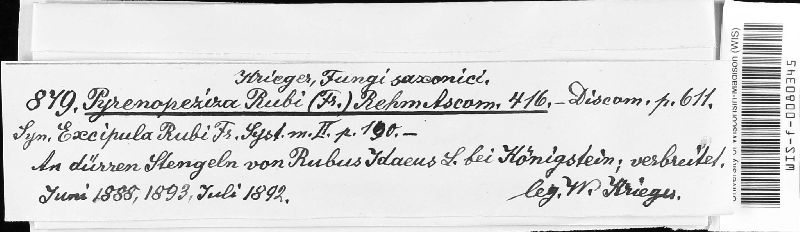 Krieger, Fungi saxonici.
879. Pyrenopeziza Rubi (Fr.) Rehm Ascom. 416. – Discom. p. 611.
Syn. Excipula Rubi Fr. Syst. m. II. p. 190. –
An dürren Stengeln von Rubus Idaeus L. bei Königstein; verbreitet.
Juni 1888, 1893, Juli 1892.
leg. W. Krieger.
(WIS)
WIS-f-0080345